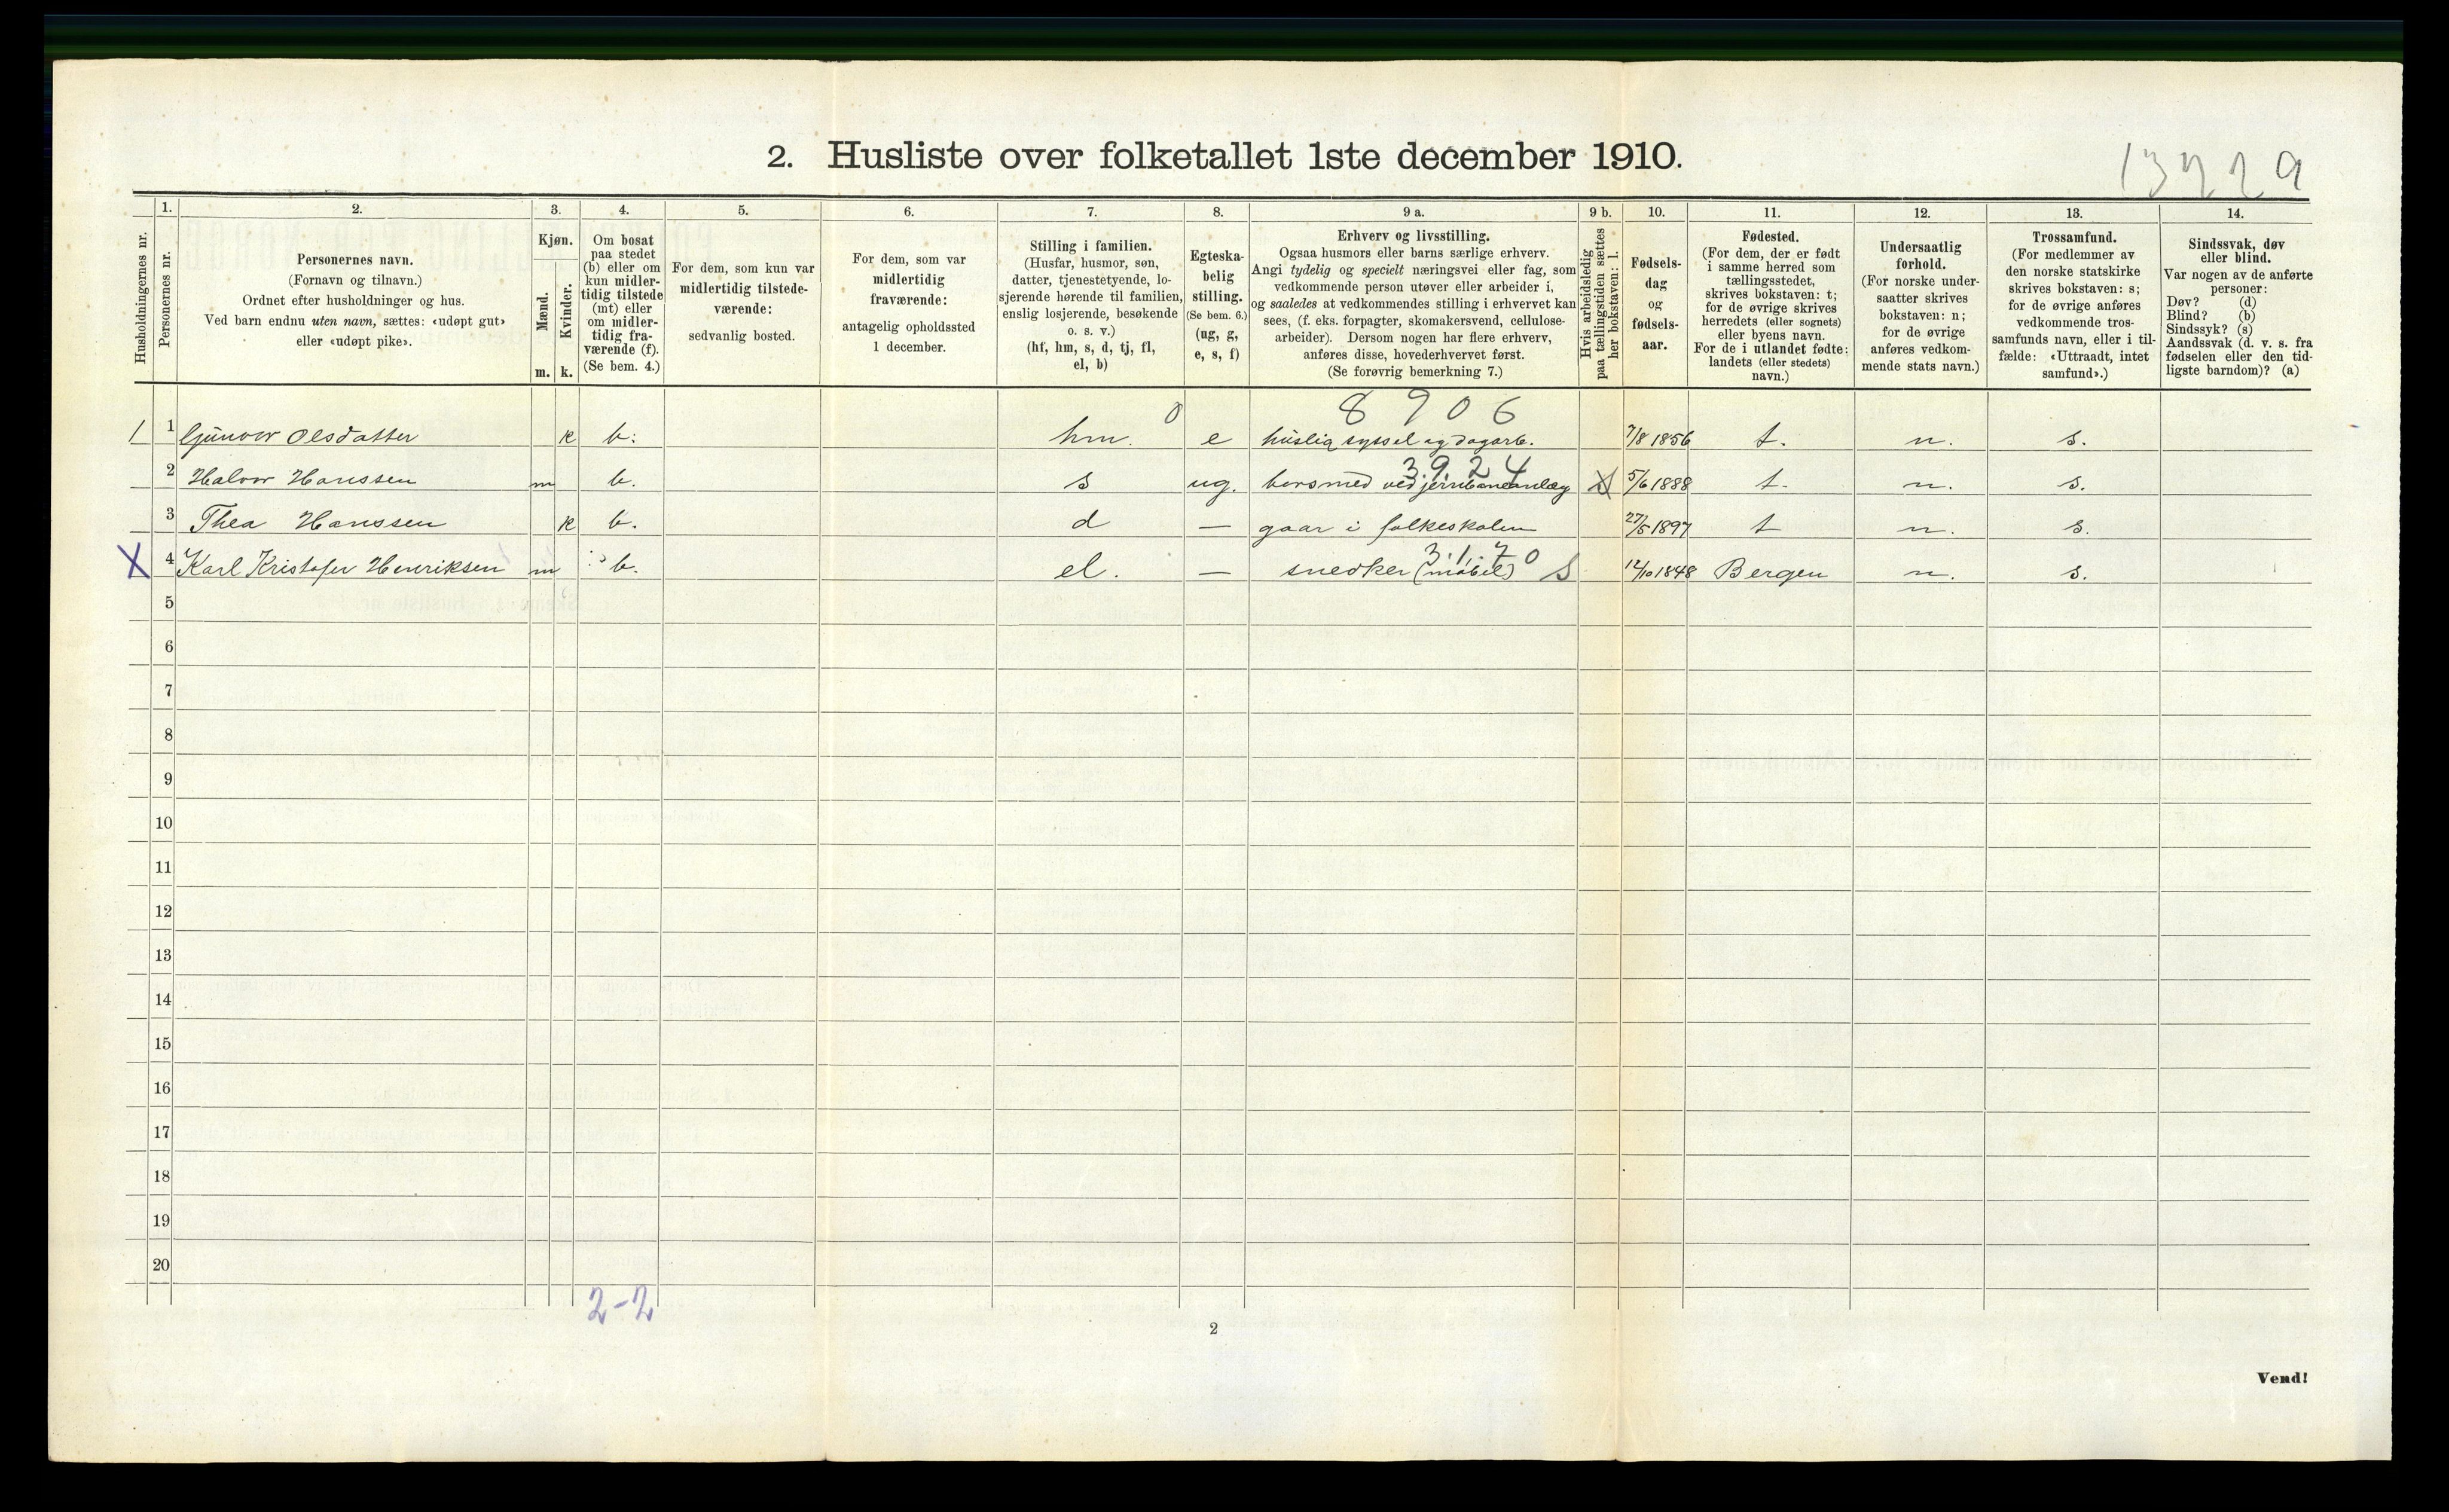 2. Husliste over folketallet 1ste december 1910.
13229
Husholdningernes nr.
1. Personernes nr.
2. Personernes navn. (Fornavn og tilnavn.) Ordnet efter husholdninger og hus. Ved barn endnu uten navn, sættes: «udøpt gut» eller «udøpt pike».
3. Kjøn. Mænd. m. Kvinder. k.
4. Om bosat paa stedet (b) eller om kun midlertidig tilstede (mt) eller om midlertidig fraværende (f). (Se bem. 4.)
5. For dem, som kun var midlertidig tilstedeværende: sedvanlig bosted.
6. For dem, som var midlertidig fraværende: antagelig opholdssted 1 december.
7. Stilling i familien. (Husfar, husmor, søn, datter, tjenestetyende, losjerende hørende til familien, enslig losjerende, besøkende o. s. v.) (hf, hm, s, d, tj, fl, el, b)
8. Egteskabelig stilling. (Se bem. 6.) (ug, g, e, s, f)
9 a. Erhverv og livsstilling. Ogsaa husmors eller barns særlige erhverv. Angi tydelig og specielt næringsvei eller fag, som vedkommende person utøver eller arbeider i, og saaledes at vedkommendes stilling i erhvervet kan sees, (f. eks. forpagter, skomakersvend, cellulosearbeider). Dersom nogen har flere erhverv, anføres disse, hovederhvervet først. (Se forøvrig bemerkning 7.)
9 b. Hvis arbeidsledig paa tællingstiden sættes her bokstaven: l.
10. Fødselsdag og fødselsaar.
11. Fødested. (For dem, der er født i samme herred som tællingsstedet, skrives bokstaven: t; for de øvrige skrives herredets (eller sognets) eller byens navn. For de i utlandet fødte: landets (eller stedets) navn.)
12. Undersaatlig forhold. (For norske undersaatter skrives bokstaven: n; for de øvrige anføres vedkommende stats navn.)
13. Trossamfund. (For medlemmer av den norske statskirke skrives bokstaven: s; for de øvrige anføres vedkommende trossamfunds navn, eller i tilfælde: «Uttraadt, intet samfund».)
14. Sindssvak, døv eller blind. Var nogen av de anførte personer: Døv? (d) Blind? (b) Sindssyk? (s) Aandssvak (d. v. s. fra fødselen eller den tidligste barndom)? (a)
0 8906
1 1 Gunvor Olsdatter k b. hm. e huslig syssel og dagarb. 7/8 1856 t. n. s.
3.9.24
2 Halvor Hanssen m b. s ug. borsmed ved jernbaneanlæg 5/6 1888 t. n. s.
3 Thea Hanssen k b. d — gaar i folkeskolen 27/5 1897 t n. s.
3.1.70
X 4 Karl Kristofer Henriksen m b. el. — snedker (møbel) S 12/10 1848 Bergen n. s.
5
6
7
8
9
10
11
12
13
14
15
16
17
18
19
20
2-2
2
Vend!